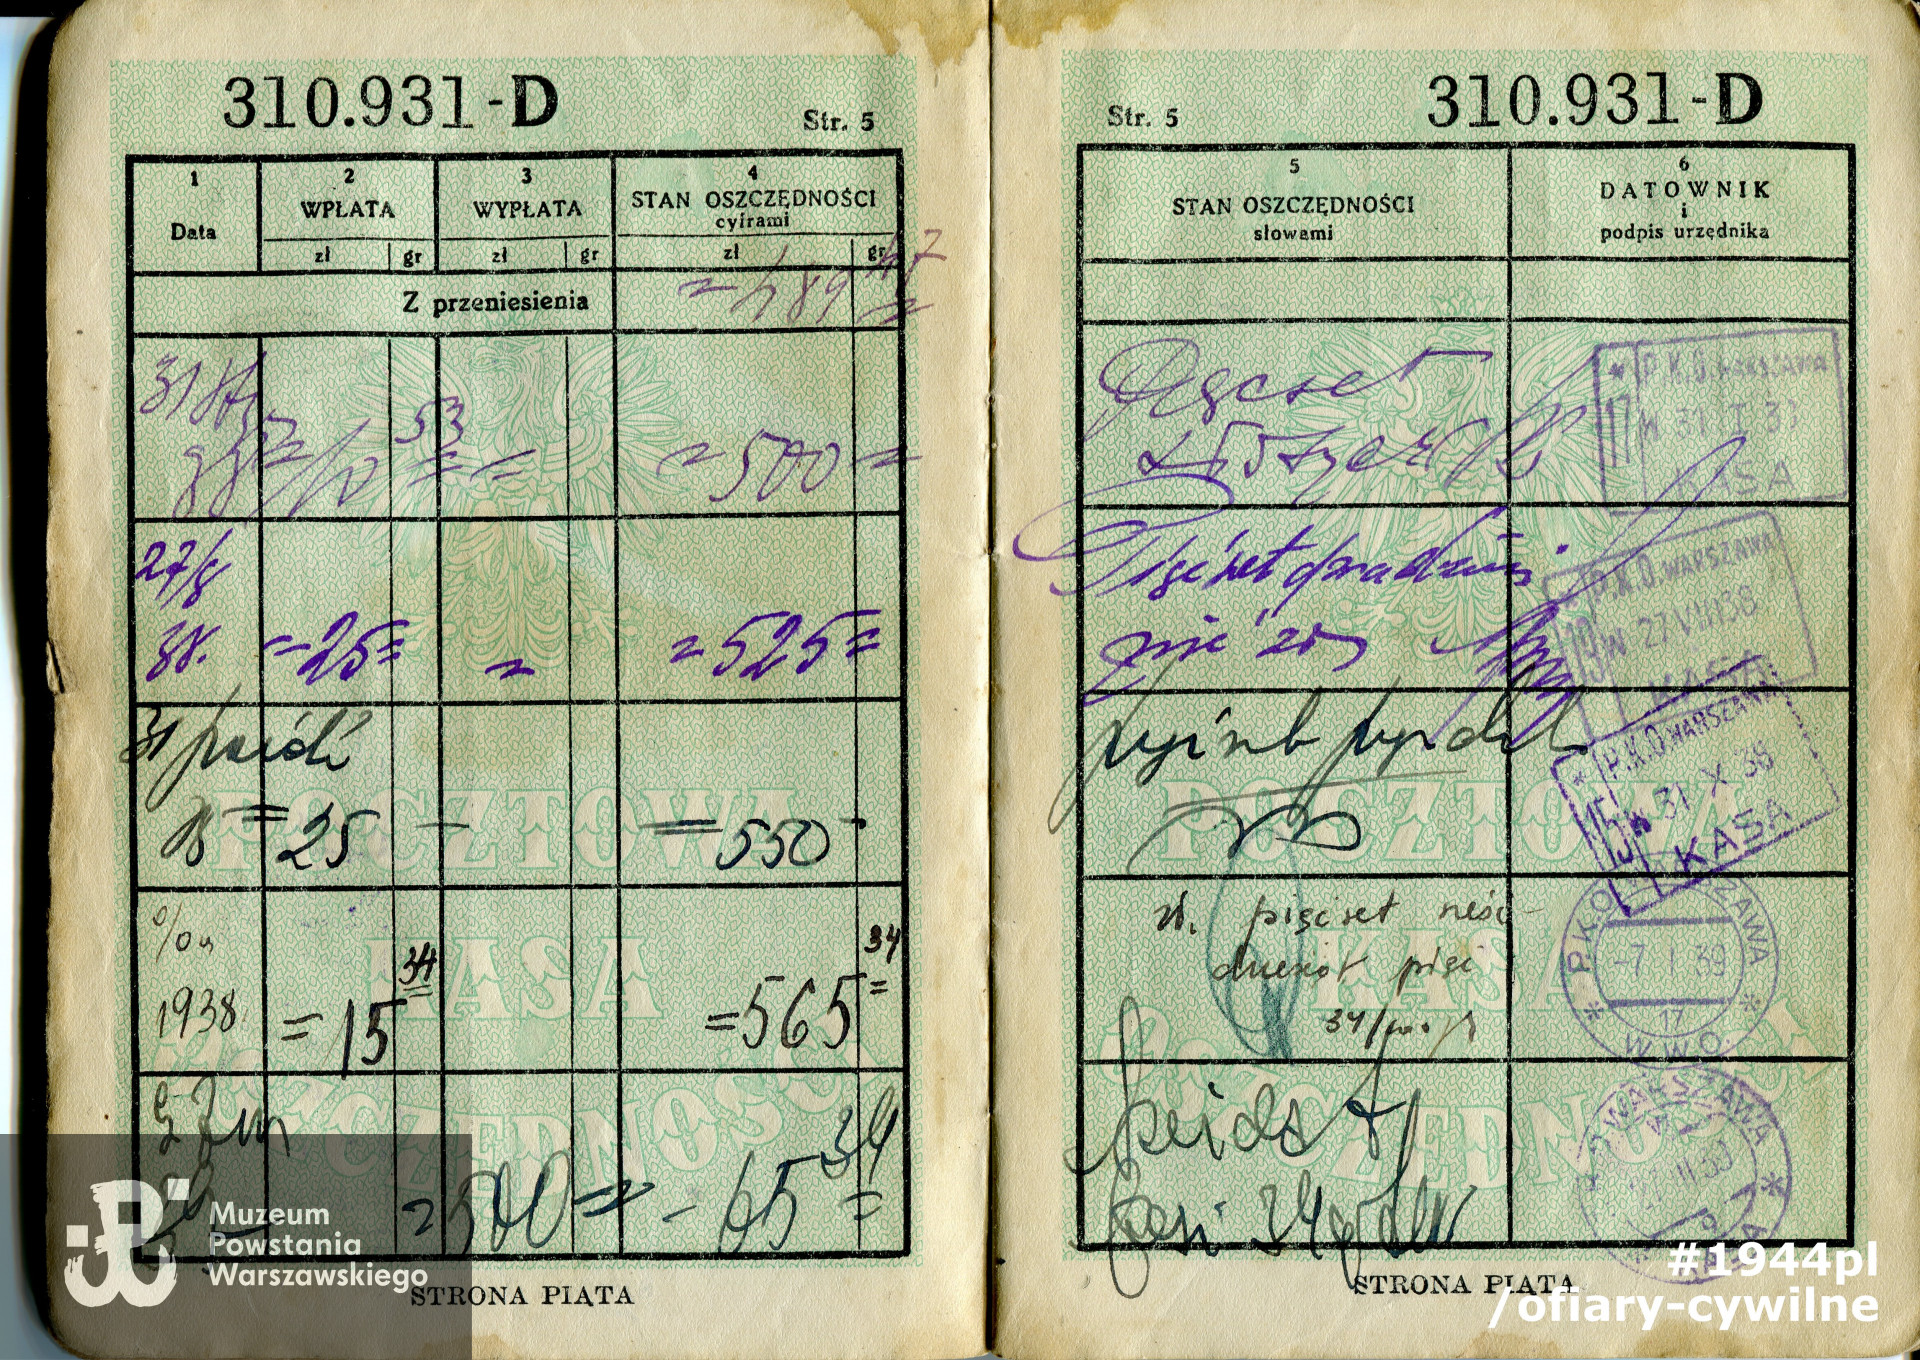 310.931-D
Str. 5
1
Data
2
WPŁATA
zł gr
3
WYPŁATA
zł gr
4
STAN OSZCZĘDNOŚCI
cyframi
zł gr
Z przeniesienia
=489 47
=
31
53
= = =500=
27/8
38. =25= = =525=
31 paźdź
=25 — =550-
%
1938 =15 34 =565 34
=
=500= -65 34
=
STRONA PIĄTA
Str. 5
310.931-D
5
STAN OSZCZĘDNOŚCI
słowami
6
DATOWNIK
i
podpis urzędnika
Pięćset
złotych
P.K.O. WARSZAWA
17 W 31
KASA
Pięćset dwadzieścia
pięć zł
P.K.O. WARSZAWA
19 W 27 VIII 38
KASA
pięćset pięćdziesiąt
P.K.O. WARSZAWA
15 W 31 X 38
KASA
zł. pięćset sześć-
dziesiąt pięć
34/
PKO WARSZAWA
-7 I 39
17
W.W.O.
34
WARSZAWA
STRONA PIĄTA
POCZTOWA
KASA
OSZCZĘDNOŚCI
POCZTOWA
KASA
Muzeum
Powstania
Warszawskiego
#1944pl
/ofiary-cywilne